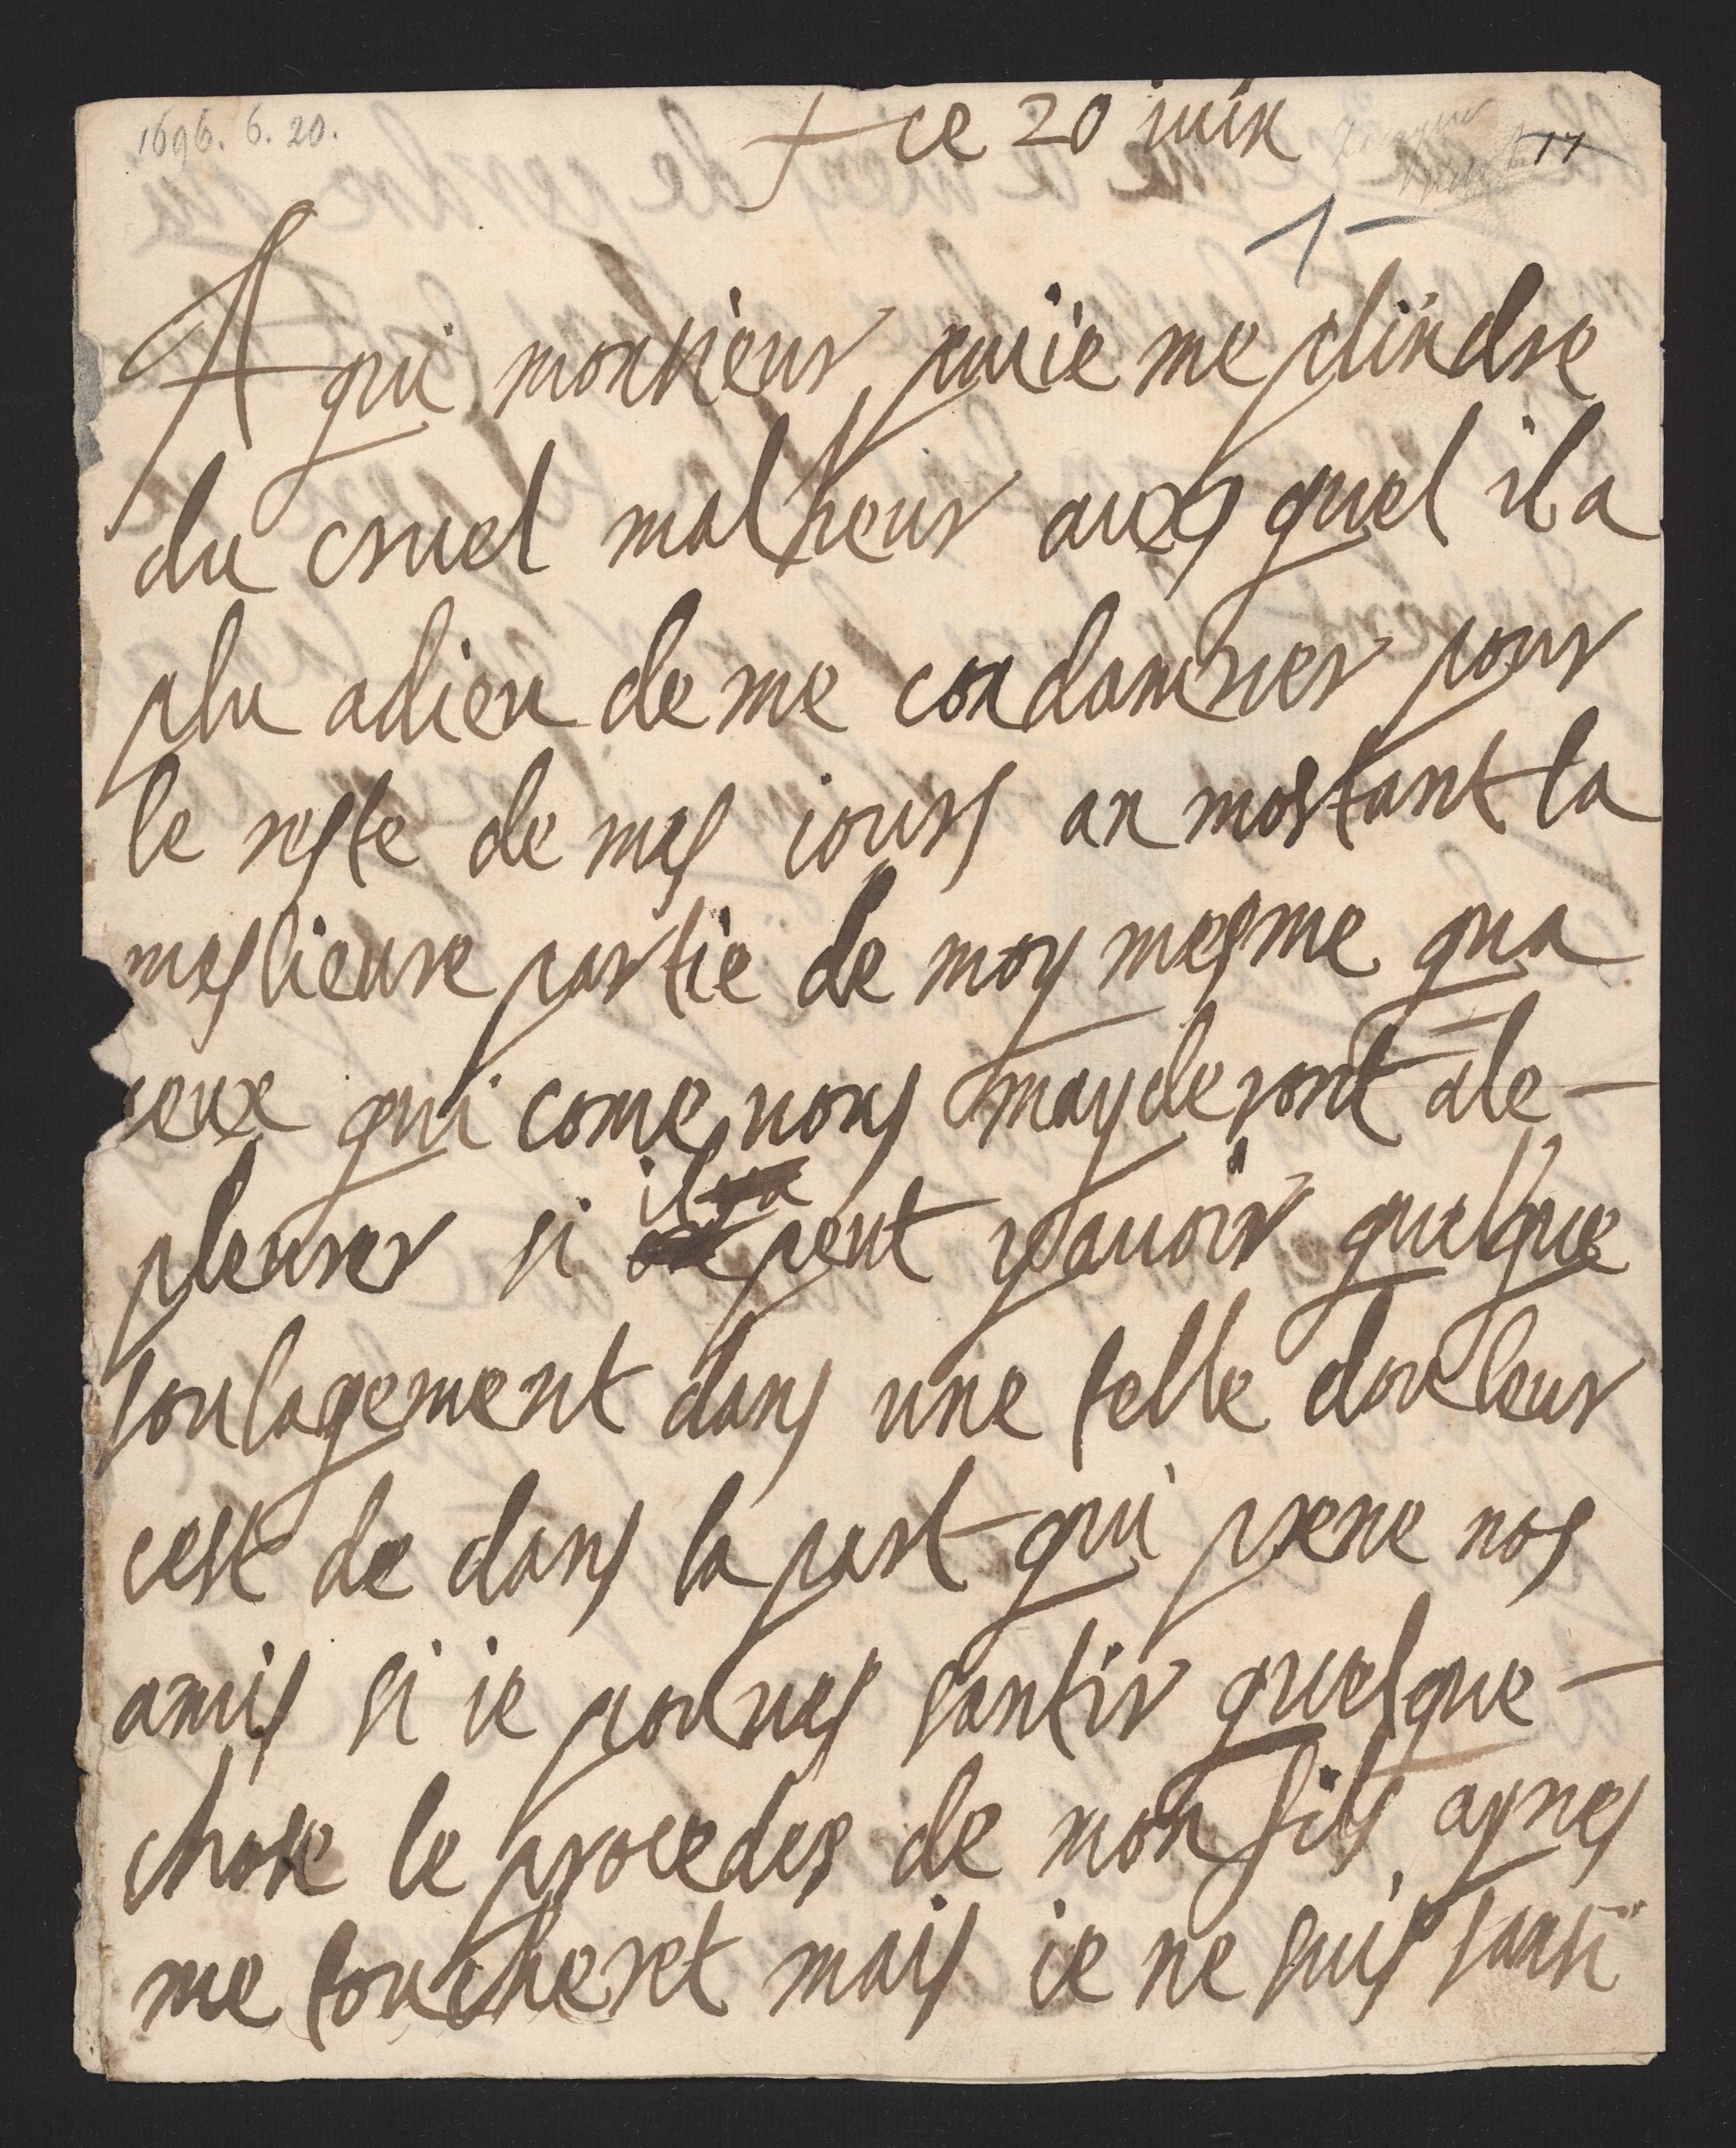 1696. 6. 20.
+ ce 20 iuin
17
A qui monsieur puiie me plindre
du cruel malheur auxs quel il a
plu adieu de me condamner pour
le reste de mes iours an mostant la
meslieure partie de moy mesme qua
ceux qui come vous mayderont ale-
pleurer si il peut yauoir quelque
soulagement dans une telle douleur
cest de dans la part qui prene nos
amis si ie pouves santir quelque-
chose le procedes de mon fils aynes
me toucheret mais ie ne suis sansi